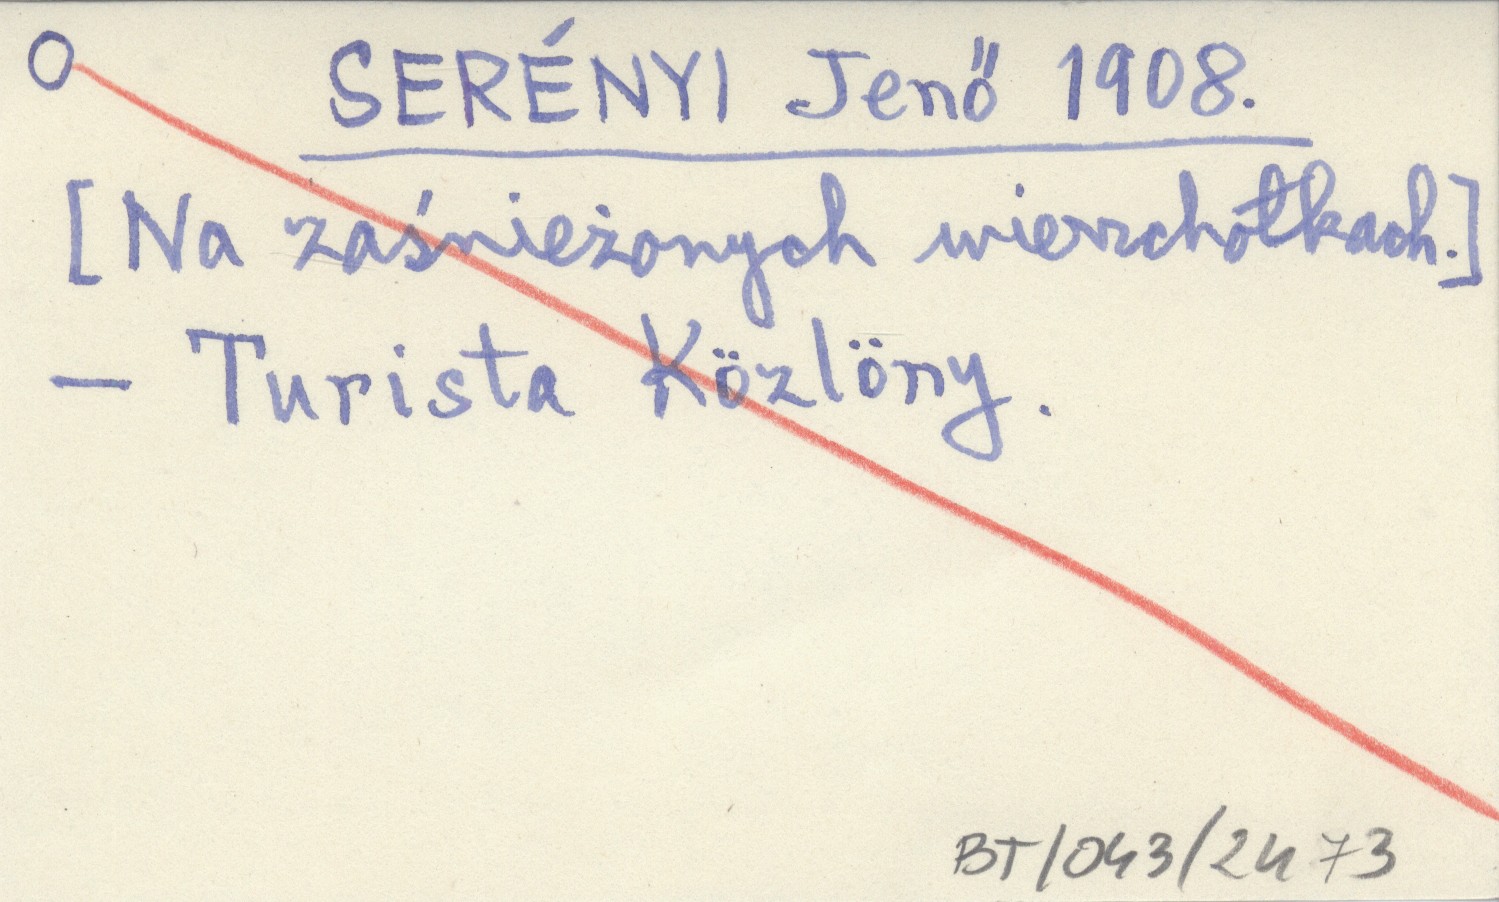 O SERÉNYI Jenő 1908.
[Na zaśnieżonych wierzchołkach.]
— Turista Közlöny.
BT/043/2473